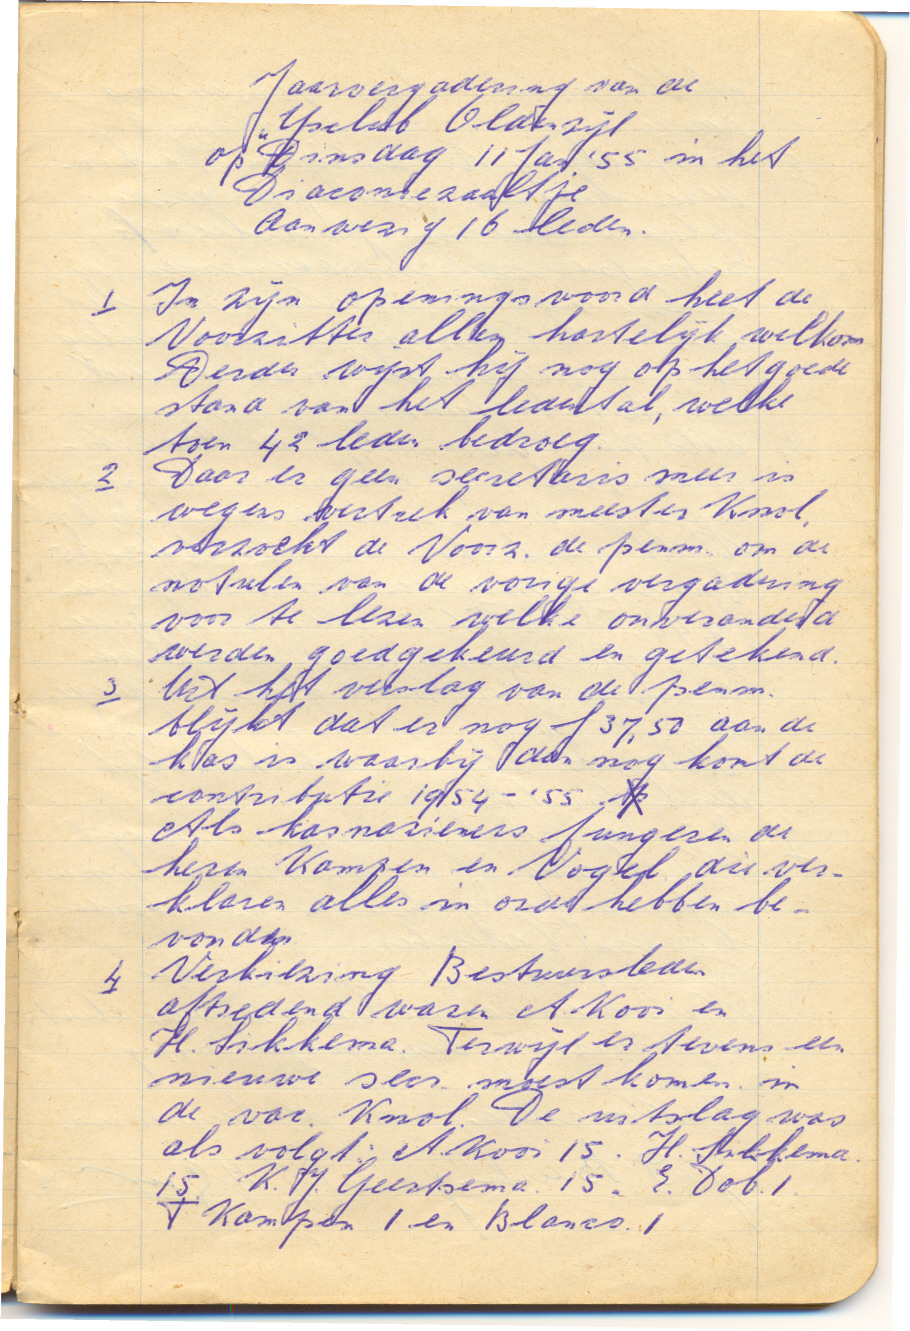 Jaarvergadering van de
"Ysclub Oldenzijl
op Dinsdag 11 Jan '55 in het
Diaconiezaaltje
Aanwezig 16 leden.
1 In zijn openingswoord heet de
Voorzitter allen hartelijk welkom
Verder wijst hij nog op het goede
stand van het ledental, welke
toen 42 leden bedroeg.
2 Daar er geen secretaris meer is
wegens vertrek van meester Knol,
verzocht de Voorz. de penm. om de
notulen van de vorige vergadering
voor te lezen welke onveranderd
werden goedgekeurd en getekend.
3 Uit het verslag van de penm.
blijkt dat er nog f 37,50 aan de
kas is waarbij dan nog komt de
contributie 1954-'55.
Als kasnazieners fungeren de
heren Kampen en Vogel die ver-
klaren alles in orde hebben be-
vonden
4 Verkiezing Bestuursleden
aftredend waren A Kooi en
H. Sikkema. Terwijl er tevens een
nieuwe secr. moest komen in
de vac. Knol. De uitslag was
als volgt: A Kooi 15. H. Sikkema.
15 K.J. Geertsema. 15. E. Dob. 1.
T Kampen 1. en Blanco. 1